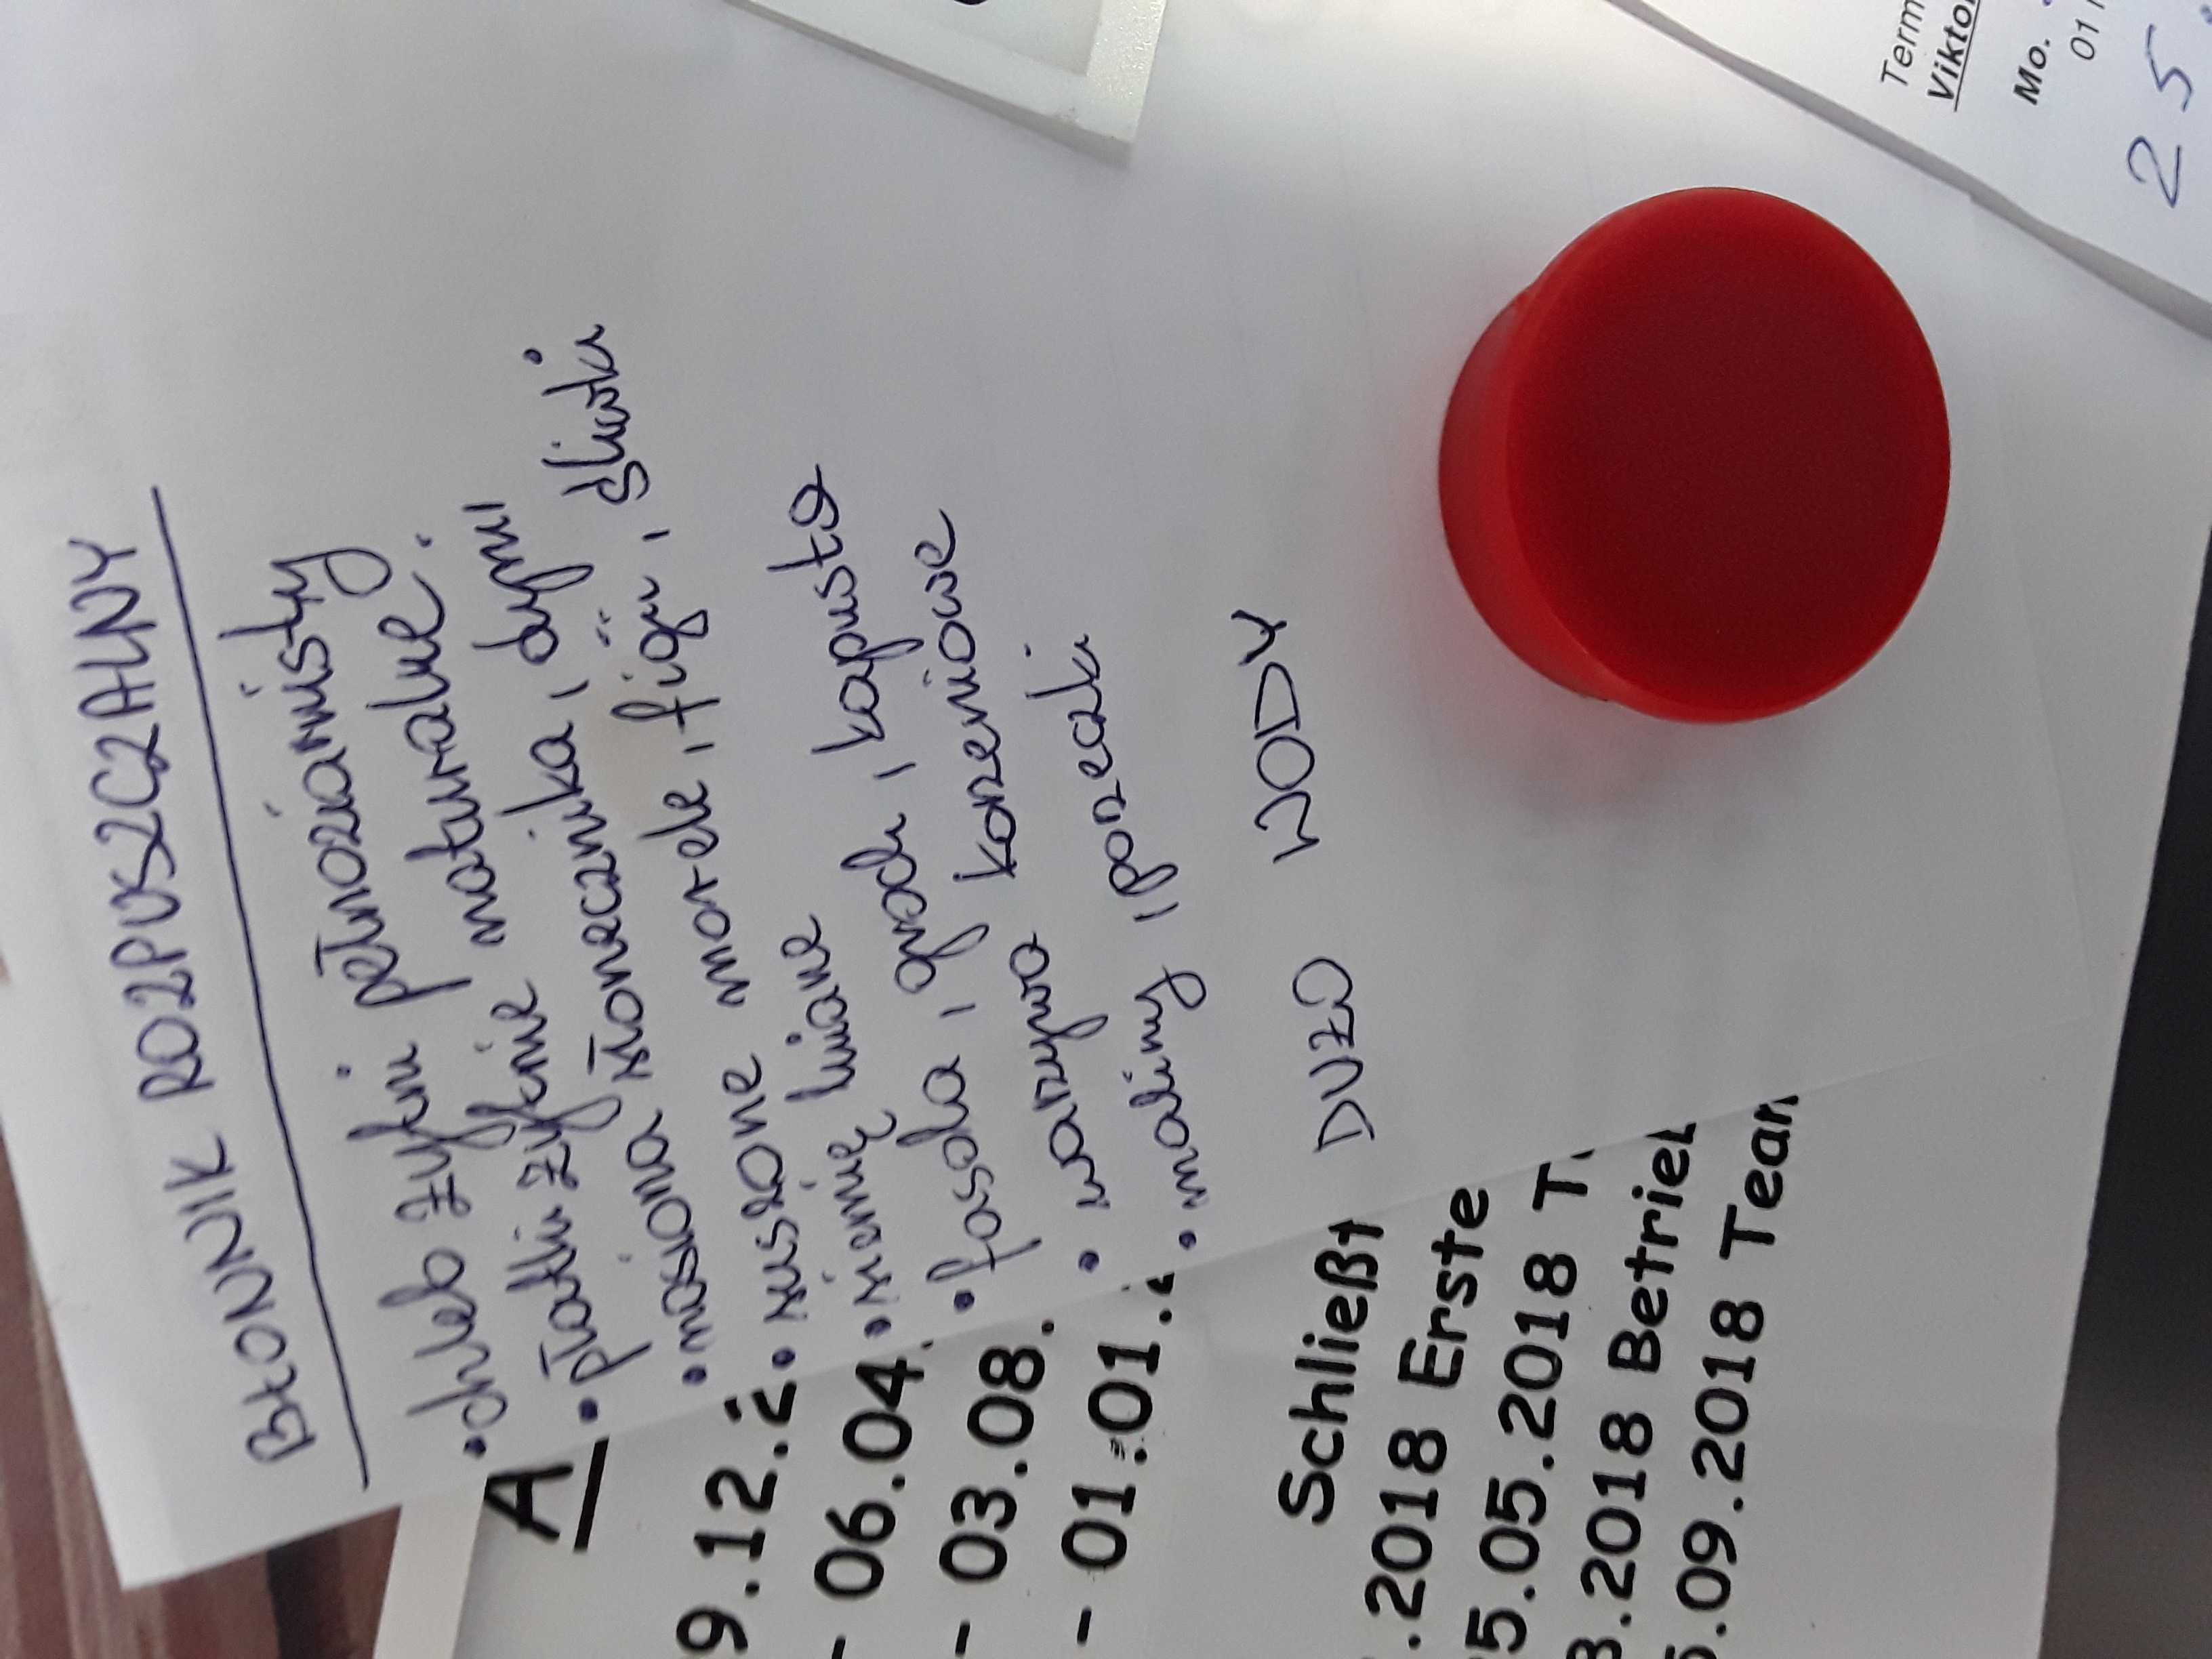 BŁONNIK ROZPUSZCZALNY
• chleb żytni pełnoziarnisty
• płatki żytnie naturalne.
• nasiona słonecznika, dyni
• suszone morele, figi, śliwki
• siemię lniane
• fasola, groch, kapusta
• warzywa korzeniowe
• maliny, porzeczki
DUŻO WODY
A
9.12.2
- 06.04.
- 03.08.
- 01.01.
Schließt
.2018 Erste
5.05.2018 T
3.2018 Betrieb
5.09.2018 Team
Term
Viktor
Mo.
01
25